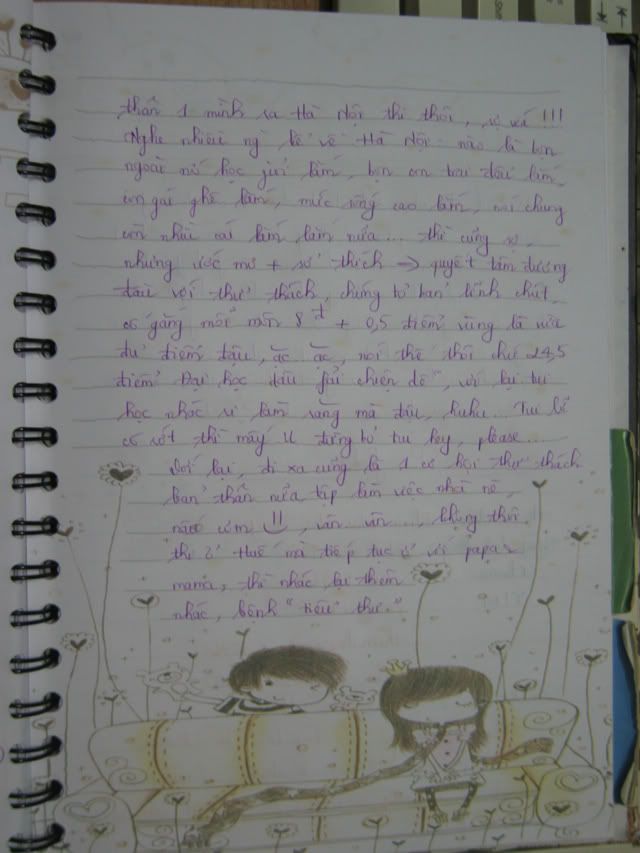 thân 1 mình ra Hà Nội thì thôi, sợ wá !!!
Nghe nhiều ng` kể về Hà Nội nào là bọn
ngoài nớ học giỏi lắm, bọn con trai đểu lắm,
con gái ghê lắm, mức sống cao lắm, nói chung
còn nhiều cái lắm lắm nữa... thì cũng sợ,
nhưng ước mơ + sở thích → quyết tâm đương
đầu với thử thách, chứng tỏ bản lĩnh chút,
cố gắng mỗi môn 8 đ + 0,5 điểm vùng là vừa
đủ điểm đậu, ặc ặc, nói thế thôi chứ 24,5
điểm Đại học đâu fải chuyện dễ, với lại tui
học nhác ri làm răng mà đậu, huhu... Tui lỡ
có rớt thì mấy U đừng bỏ tui hey, please...
Đổi lại, đi xa cũng là 1 cơ hội thử thách
bản thân nữa tập làm việc nhà nè,
nấu cơm, vân vân..., không thôi
thì ở Huế mà tiếp tục ở với papa &
mama, thì nhác lại thêm
nhác, bệnh "tiểu thư."